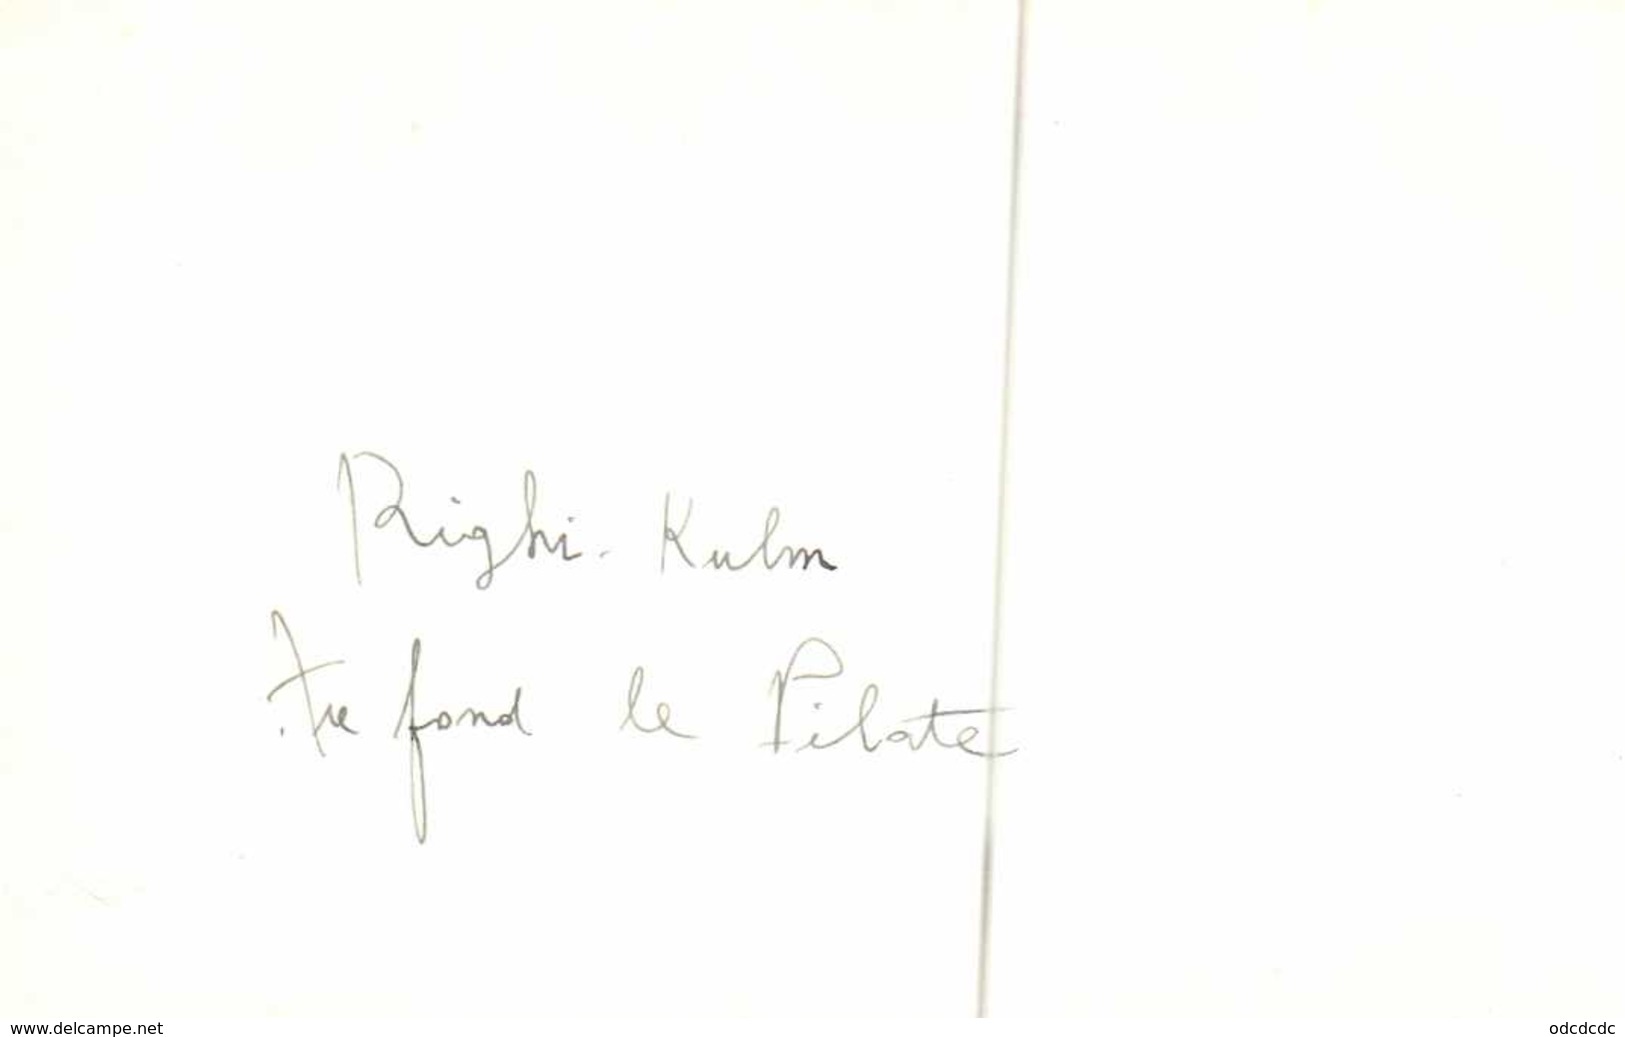 Righi - Kulm
Au fond le Pilate
www.delcampe.net
odcdcdc